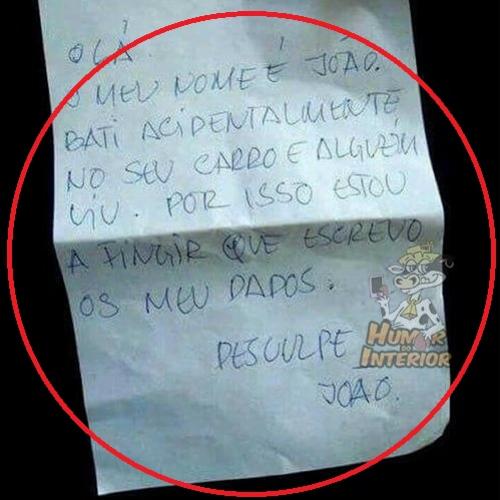 OLÁ.
O MEU NOME É JOÃO.
BATI ACIDENTALMENTE
NO SEU CARRO E ALGUÉM
VIU. POR ISSO ESTOU
A FINGIR QUE ESCREVO
OS MEU DADOS.
DESCULPE
JOÃO.
HUMOR
DO
INTERIOR